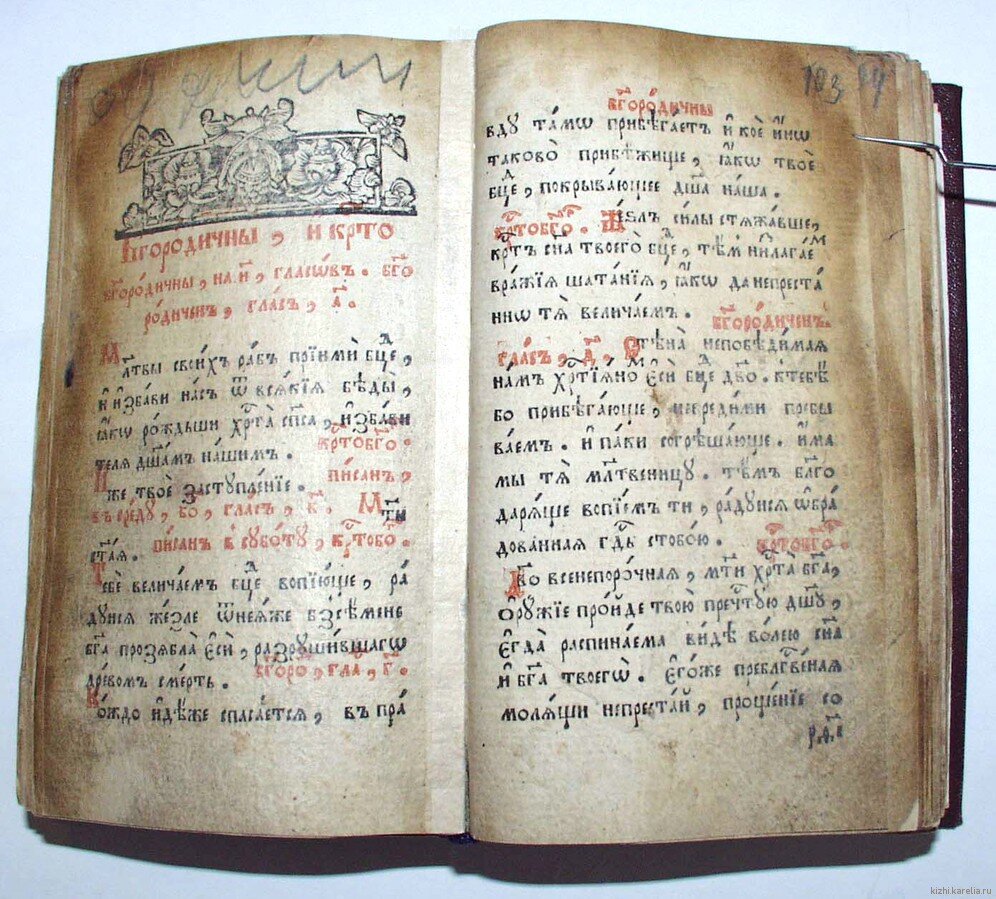 Бг҃оро́дичны , и҆ крⷭ҇то
бг҃оро́дичны , на .и҃. гла́сѡвъ . бг҃о
ро́диченъ , гла́съ , а҃ .
Мл҃твы свои́хъ ра́бъ прїимѝ бц҃е ,
и҆ и҆зба́ви на́съ ѿ вся́кїѧ бѣды̀ ,
ꙗ҆́кѡ ро́ждьши хрⷭ҇та̀ сп҃са , и҆зба́ви
телѧ дш҃а́мъ на́шимъ . крⷭ҇тобг҃о .
И҆́же твоѐ заступле́нїе . пи́санъ ,
въ сре́ду , бо , гла́съ , в҃ . Мⷭ҇ты
стаѧ . пи́санъ в суббо́ту , крⷭ҇тобо .
Тебѐ велича́емъ бц҃е вопїю́ще , ра́
дуйсѧ же́зле ѿнеꙗ́же бз̾сѣ́мене
бг҃а прозѧбла̀ є҆сѝ , разруши́вшагѡ
дре́вомъ сме́рть . бг҃оро , гла , г҃ .
Ко́ждо и҆дѣ́же спаса́етсѧ , въ пра́
103
бг҃оро́дичны
вду та́мѡ прибѣга́етъ и҆ ко́е и҆́нѡ
таково̀ прибѣ́жище , ꙗ҆́кѡ твоѐ
бц҃е , покрыва́ющее дш҃а на́ша .
крⷭ҇тобг҃о . Жезлъ си́лы стѧжа́вше ,
крⷭ҇тъ сн҃а твоего̀ бц҃е , тѣ́мъ низлага́еⷨ
вра́жїѧ шата́нїѧ , ꙗ҆́кѡ да непреста́
ннѡ тѧ̀ велича́емъ . бг҃оро́диченъ .
гла́съ , д҃ , Стѣна̀ непобѣди́маѧ
на́мъ хрⷭ҇тїѧ́нѡⷨ є҆сѝ бц҃е дв҃о . к тебѣ́
бо прибѣга́юще , невреди́ми пребы
ва́емъ . и҆ па́ки согрѣша́юще . и҆́ма
мы тѧ̀ мл҃твеницу . тѣ́мъ бл҃го
дарѧ́ще вопїе́мъ ти , ра́дуйсѧ ѡ҆бра́
дованнаѧ гдⷭ҇ь стобо́ю . крⷭ҇тобг҃о .
Дв҃о всенепоро́чнаѧ , мт҃и хрⷭ҇та̀ бг҃а ,
ѻ҆ру́жїе про́йде твою̀ пречⷭ҇тую дш҃у ,
є҆гда̀ распина́ема ви́дѣ во́лею сн҃а
и҆ бг҃а твоегѡ̀ . є҆го́же преблгⷭ҇ве́наѧ
молѧ́щи непреста́й , проще́нїе со
р.д҃.і
kizhi.karelia.ru